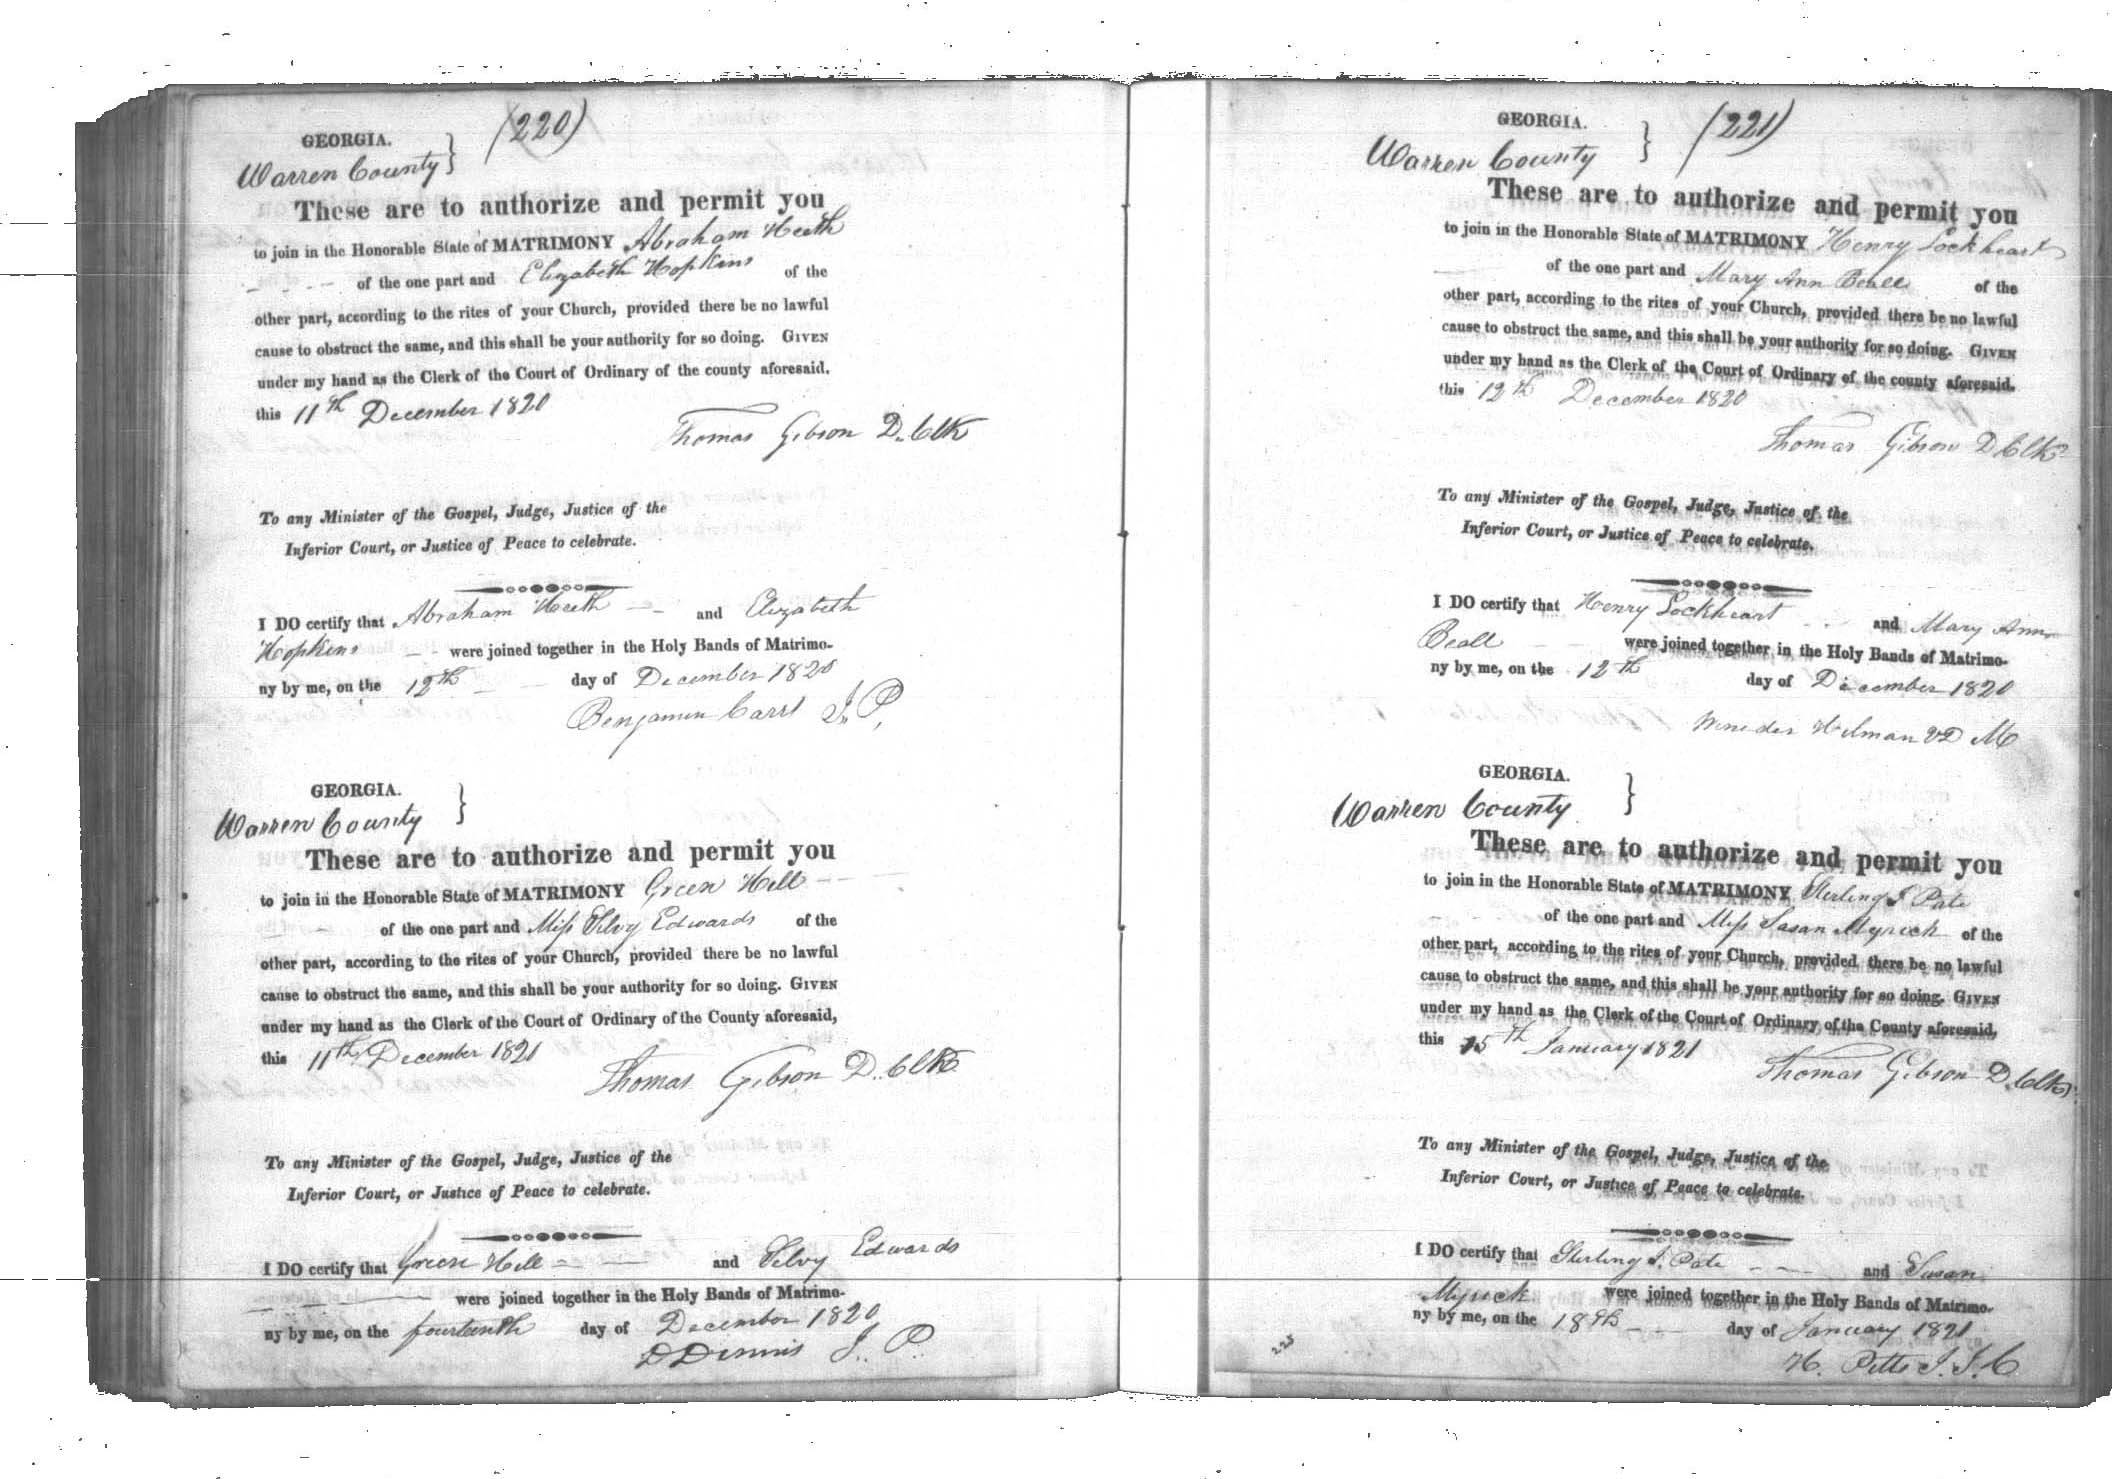 (220)
GEORGIA. }
Warren County
These are to authorize and permit you
to join in the Honorable State of MATRIMONY Abraham Heeth
of the one part and Elizabeth Hopkins of the
other part, according to the rites of your Church, provided there be no lawful
cause to obstruct the same, and this shall be your authority for so doing. GIVEN
under my hand as the Clerk of the Court of Ordinary of the county aforesaid.
this 11th December 1820
Thomas Gibson D. Clk
To any Minister of the Gospel, Judge, Justice of the
Inferior Court, or Justice of Peace to celebrate.
I DO certify that Abraham Heeth and Elizabeth
Hopkins were joined together in the Holy Bands of Matrimo-
ny by me, on the 12th day of December 1820
Benjamin Carrl J. P.
GEORGIA. }
Warren County
These are to authorize and permit you
to join in the Honorable State of MATRIMONY Green Hill
of the one part and Miss Silvy Edwards of the
other part, according to the rites of your Church, provided there be no lawful
cause to obstruct the same, and this shall be your authority for so doing. GIVEN
under my hand as the Clerk of the Court of Ordinary of the County aforesaid,
this 11th December 1821
Thomas Gibson D. Clk
To any Minister of the Gospel, Judge, Justice of the
Inferior Court, or Justice of Peace to celebrate.
I DO certify that Green Hill and Silvy Edwards
were joined together in the Holy Bands of Matrimo-
ny by me, on the fourteenth day of December 1820
D Dennis J. P.
(221)
GEORGIA. }
Warren County
These are to authorize and permit you
to join in the Honorable State of MATRIMONY Henry Lockheart
of the one part and Mary Ann Beall of the
other part, according to the rites of your Church, provided there be no lawful
cause to obstruct the same, and this shall be your authority for so doing. GIVEN
under my hand as the Clerk of the Court of Ordinary of the county aforesaid.
this 12th December 1820
Thomas Gibson D Clk
To any Minister of the Gospel, Judge, Justice of the
Inferior Court, or Justice of Peace to celebrate.
I DO certify that Henry Lockheart and Mary Ann
Beall were joined together in the Holy Bands of Matrimo-
ny by me, on the 12th day of December 1820
Hilman VD M
GEORGIA. }
Warren County
These are to authorize and permit you
to join in the Honorable State of MATRIMONY Sterling J Pate
of the one part and Miss Susan Myrick of the
other part, according to the rites of your Church, provided there be no lawful
cause to obstruct the same, and this shall be your authority for so doing. GIVEN
under my hand as the Clerk of the Court of Ordinary of the County aforesaid,
this 15th January 1821
Thomas Gibson D. Clk
To any Minister of the Gospel, Judge, Justice of the
Inferior Court, or Justice of Peace to celebrate.
I DO certify that Sterling J. Pate and Susan
Myrick were joined together in the Holy Bands of Matrimo-
ny by me, on the 18th day of January 1821
H. Pitts J. I. C